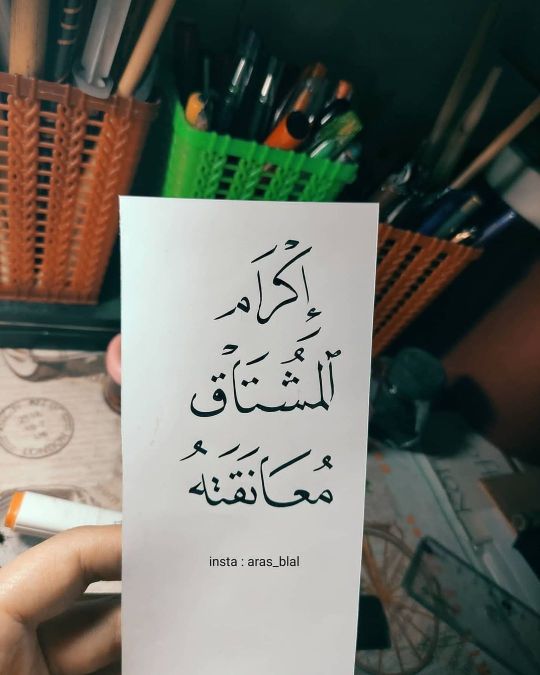 إِكْرَام
ٱلمُشْتَاقْ
مُعَانَقَتَهُ
insta : aras_blal
LONDON